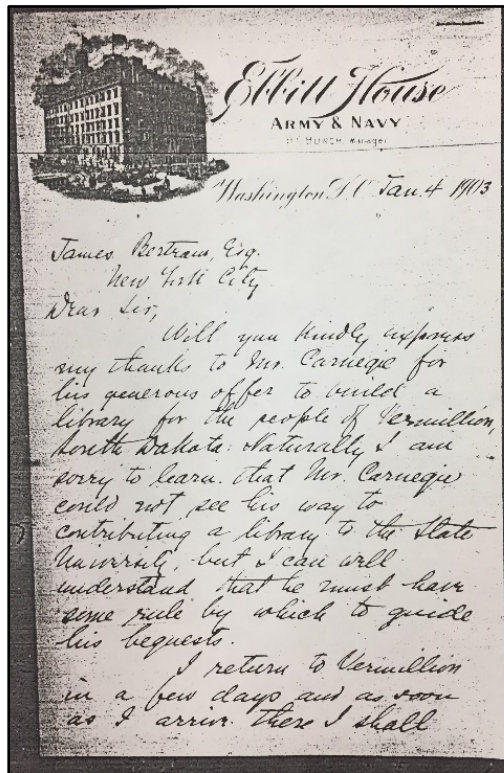 Ebbitt House
ARMY & NAVY
Manager
Washington, D.C. Jan. 4 1903
James Bertram, Esq.
New York City
Dear Sir,
Will you kindly express
my thanks to Mr. Carnegie for
his generous offer to build a
library for the people of Vermillion,
South Dakota. Naturally I am
sorry to learn that Mr. Carnegie
could not see his way to
contributing a library to the State
University, but I can well
understand that he must have
some rule by which to guide
his bequests.
I return to Vermillion
in a few days and as soon
as I arrive there I shall